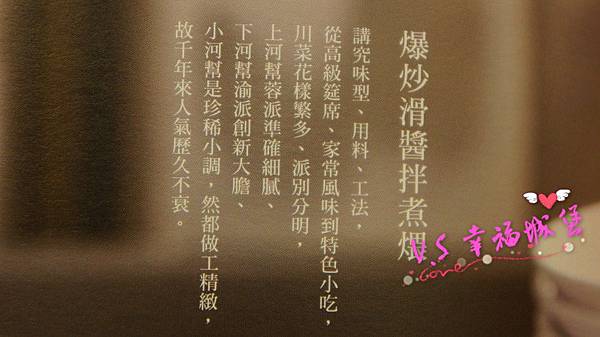 爆炒滑醬拌煮煨
講究味型、用料、工法，
從高級筵席、家常風味到特色小吃，
川菜花樣繁多、派別分明，
上河幫蓉派準確細膩、
下河幫渝派創新大膽、
小河幫是珍稀小調，然都做工精緻，
故千年來人氣歷久不衰。
V.S 幸福城堡
Love